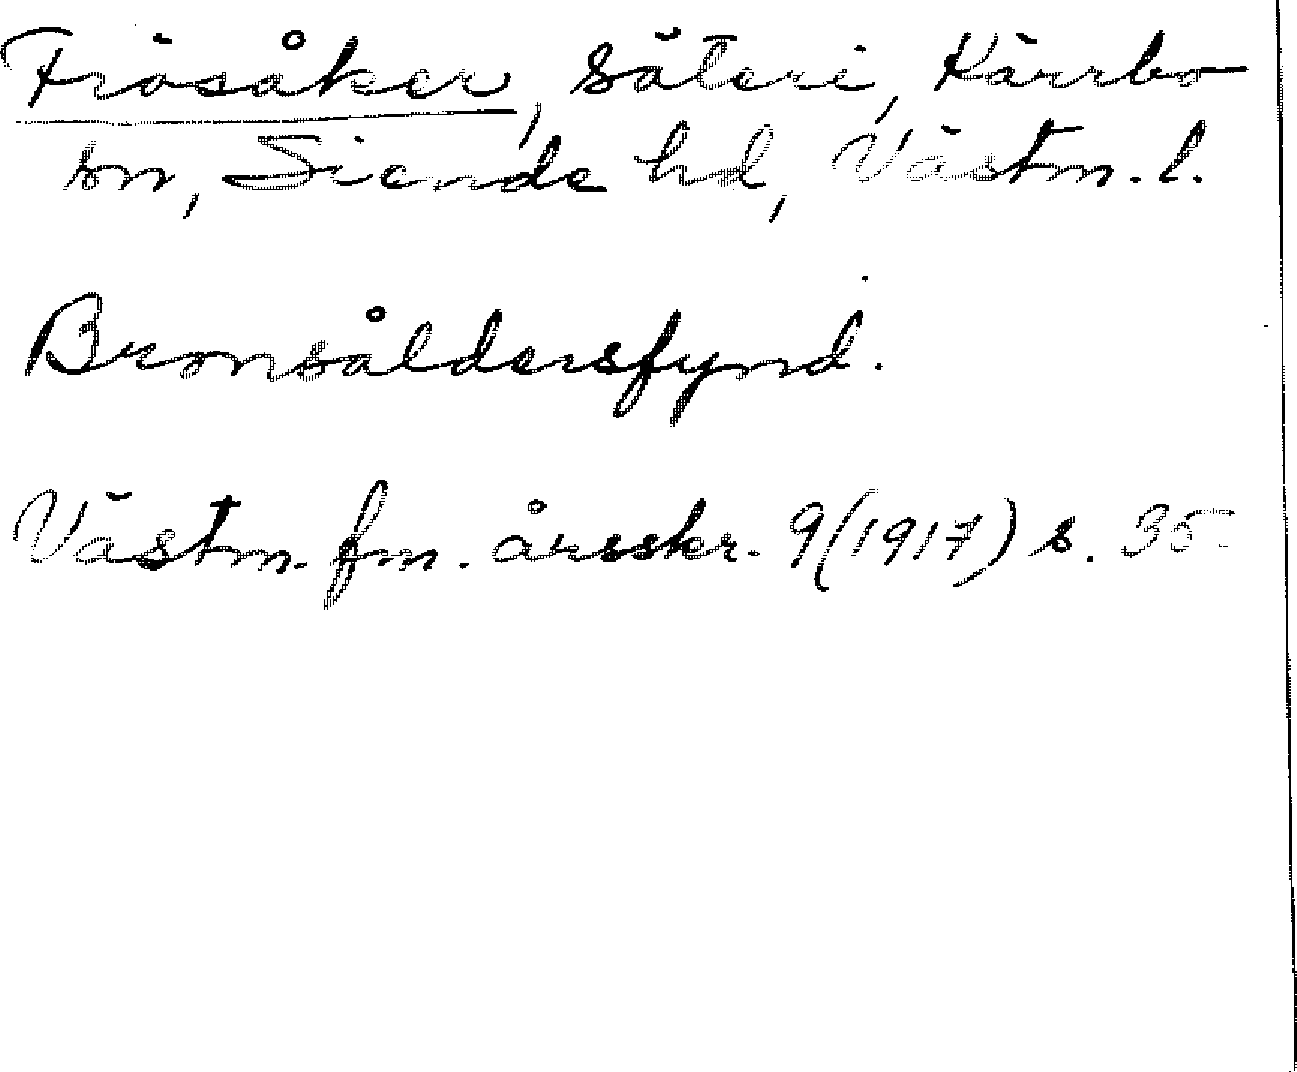 Frösåker, säteri, Kärrbo
sn, Siende hd, Västm. l.
Bronsåldersfynd.
Västm. fm. årsskr. 9 (1917) s. 35